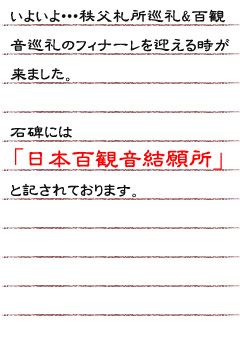 いよいよ・・・秩父札所巡礼&百観
音巡礼のフィナーレを迎える時が
来ました。
石碑には
「日本百観音結願所」
と記されております。